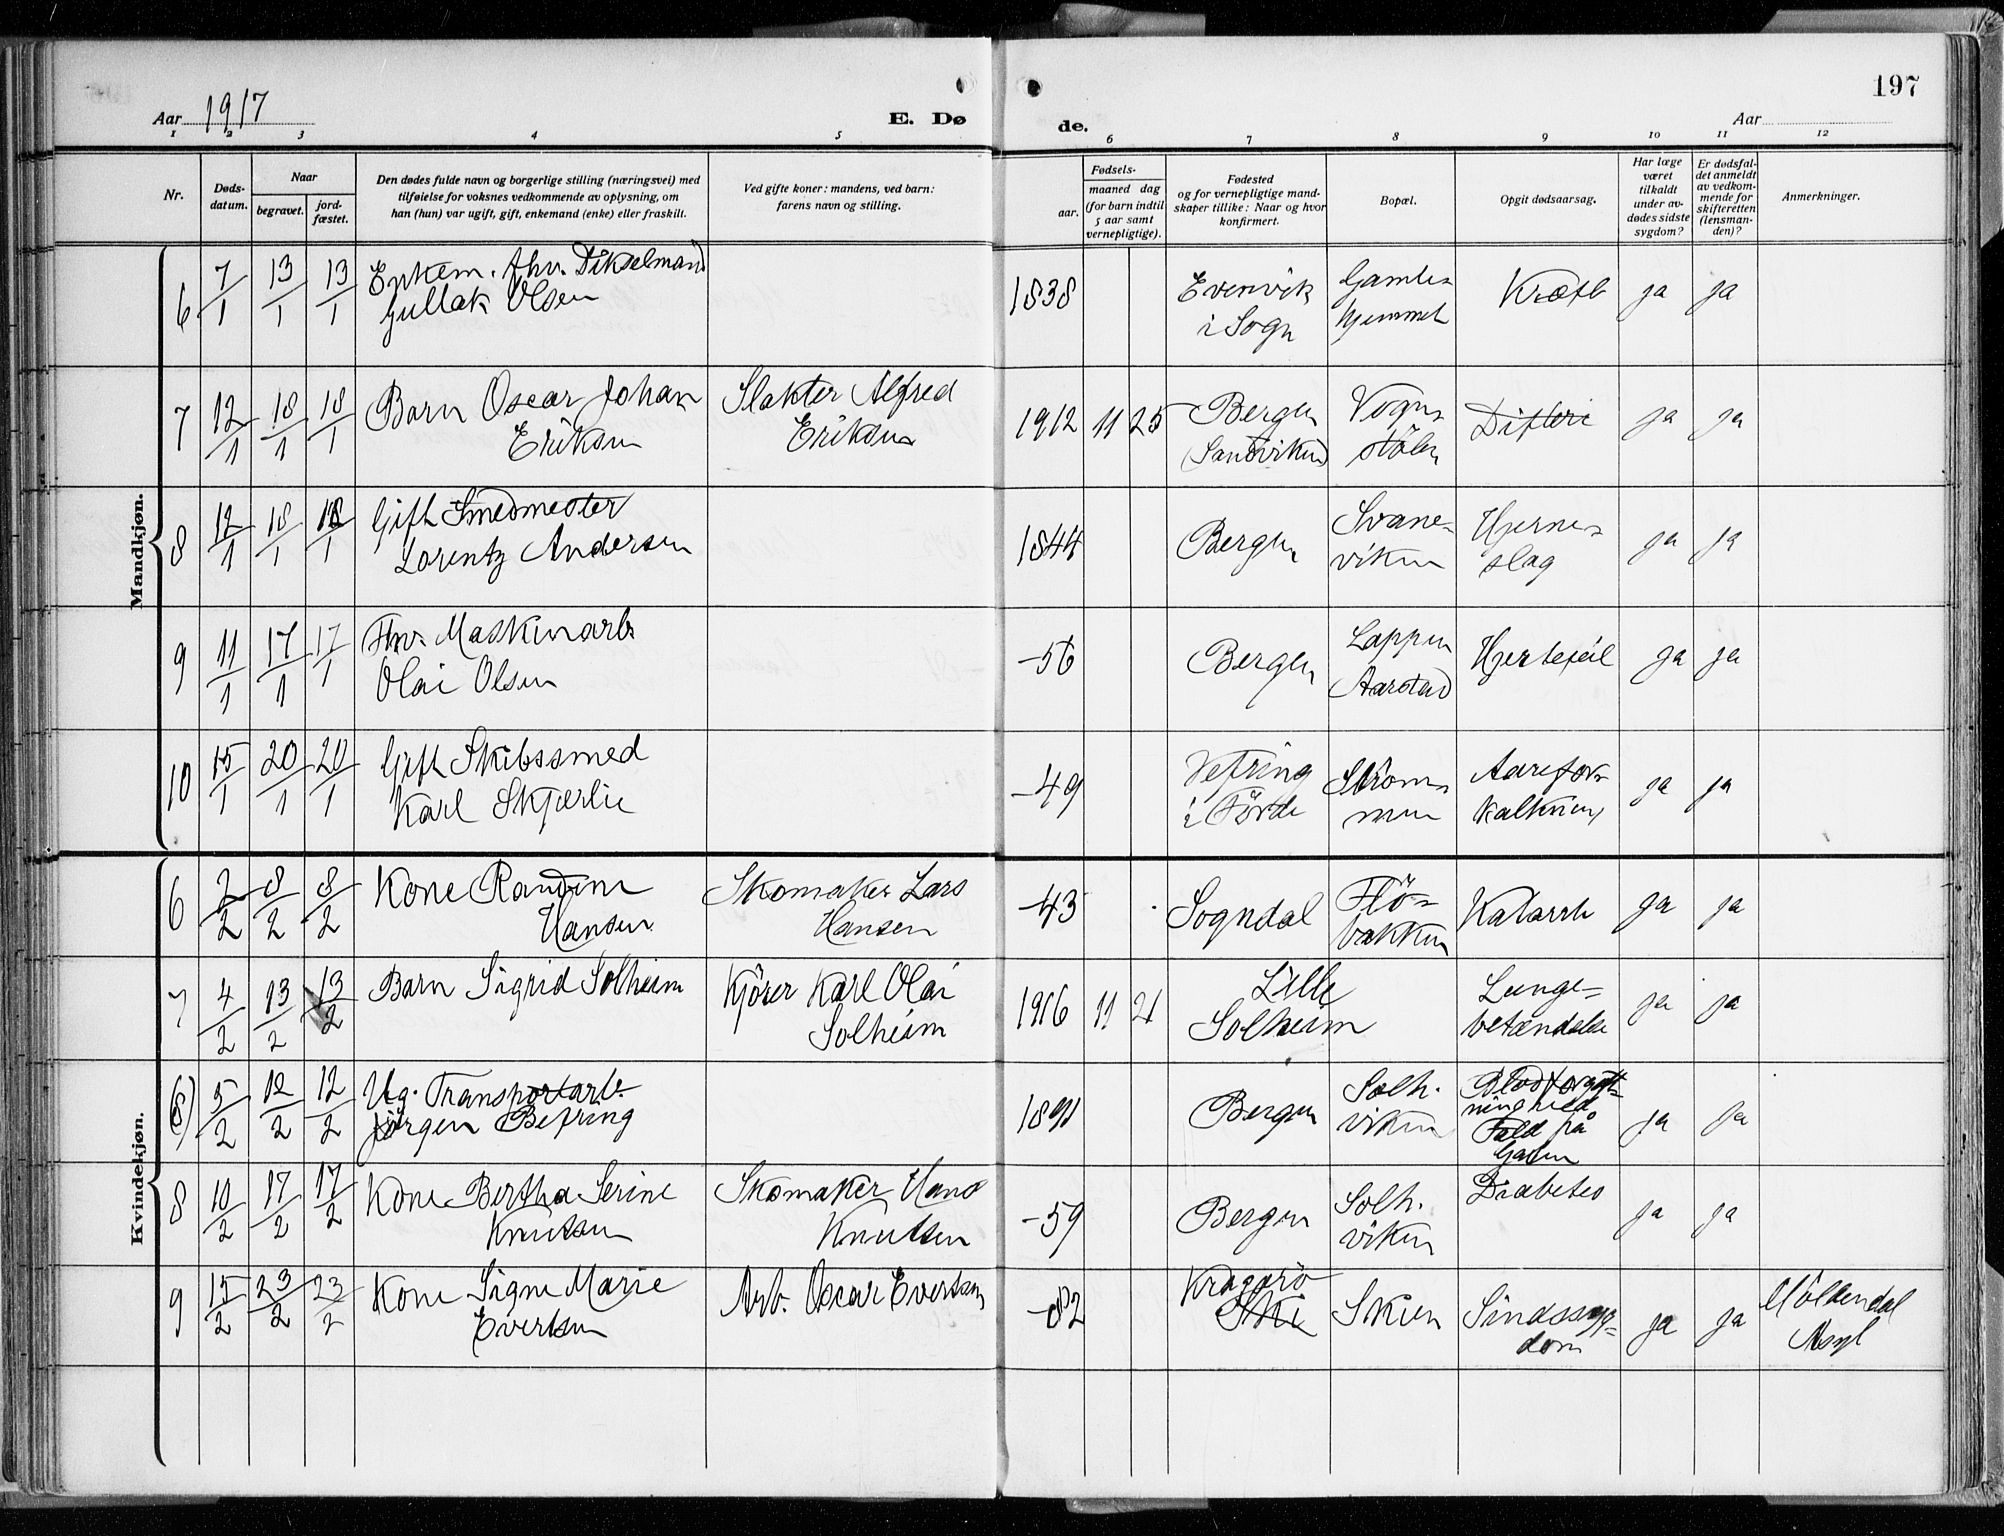 197
Aar 1917
E. Dø
de.
Aar
1 2 3 4 5 6 7 8 9 10 11 12
Nr.
Døds-
datum.
Naar
begravet.
jord-
fæstet.
Den dødes fulde navn og borgerlige stilling (næringsvei) med
tilføielse for voksnes vedkommende av oplysning, om
han (hun) var ugift, gift, enkemand (enke) eller fraskilt.
Ved gifte koner: mandens, ved barn:
farens navn og stilling.
Fødsels-
aar.
maaned dag
(for barn indtil
5 aar samt
vernepligtige).
Fødested
og for vernepligtige mand-
skaper tillike: Naar og hvor
konfirmert.
Bopæl.
Opgit dødsaarsag.
Har læge
været
tilkaldt
under av-
dødes sidste
sygdom?
Er dødsfal-
det anmeldt
av vedkom-
mende for
skifteretten
(lensman-
den)?
Anmerkninger.
Mandkjøn.
6 7/1 13/1 13/1 Enkem. fhv. Dikselmand
Gullak Olsen
1838 Evenvik
i Sogn
Gamle=
hjemmet
Kræft ja ja
7 12/1 18/1 18/1 Barn Oscar Johan
Eriksen
Slakter Alfred
Eriksen
1912 11 25 Bergen
(Sandviken)
Vogn=
stölen
Difteri ja ja
8 12/1 18/1 18/1 Gift Smedmester
Lorentz Andersen
1844 Bergen Svane=
viken
Hjerne=
slag
ja ja
9 11/1 17/1 17/1 Fhv. Maskinarb.
Olai Olsen
-56 Bergen Lappen
Aarstad
Hjertefeil ja ja
10 15/1 20/1 20/1 Gift Skibssmed
Karl Skjærlie
-49 Vefring
i Förde
Ström=
men
Aarefor=
kalkning
ja ja
Kvindekjøn.
6 2/2 8/2 8/2 Kone Randine
Hansen
Skomaker Lars
Hansen
-43 Sogndal Flö=
bakken
Katarrh ja ja
7 4/2 13/2 13/2 Barn Sigrid Solheim
Kjörer Karl Olai
Solheim
1916 11 21 Lille
Solheim
Lunge=
betændelse
ja ja
(6) 5/2 12/2 12/2 Ug. Transportarb.
Jörgen Befring
1891 Bergen Solh.
viken
Blodforgift=
ning ved
Fald på
Gaten
ja ja
8 10/2 17/2 17/2 Kone Bertha Serine
Knutsen
Skomaker Hans
Knutsen
-59 Bergen Solh.
viken
Diabetes ja ja
9 15/2 23/2 23/2 Kone Signe Marie
Evertsen
Arb. Oscar Evertsen
-82 Kragerö
Ski
Skien Sindssyg=
dom
ja ja Möllendal
Asyl